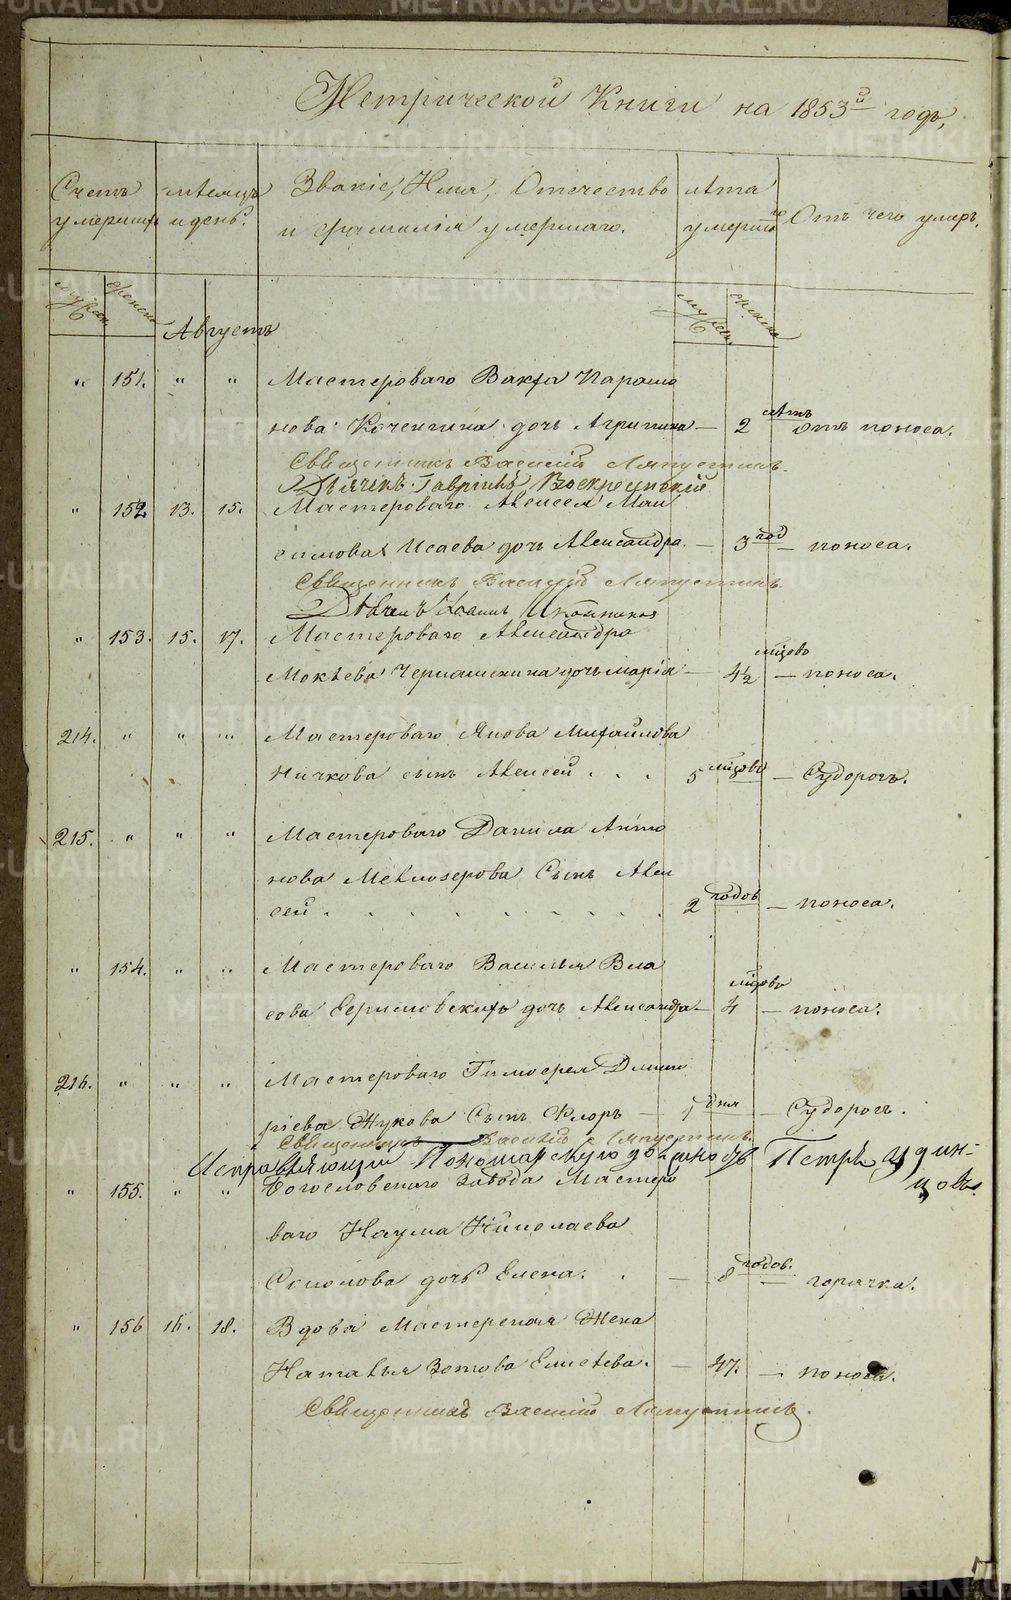 Метрической Книги на 1853й годъ,
Счетъ умершихъ
месяцъ и день.
Званіе, Имя, Отечество и фамилія умершаго.
лета умершаго
Отъ чего умеръ.
мужеска женска
Августъ
мужеска женска
" 151. " " Мастероваго Вакха Парамо
нова Коченгина дочь Агрипина — 2 летъ отъ поноса.
Священникъ Василій Ляпустинъ.
Дьячекъ Гавріилъ Воскресенскій
" 152 13. 15. Мастероваго Алексея Мак
симова Исаева дочь Александра. — 3 год — поноса.
Священникъ Василій Ляпустинъ.
Дьячекъ Іоаннъ
" 153. 15. 17. Мастероваго Александра
Мокеева Чернышихина дочь Марія — 4½ — поноса.
214. " " " Мастероваго Якова Михайлова
Ничкова сынъ Алексей . . . 5 — Судорогъ.
215. " " " Мастероваго Данила Анто
нова сынъ Алек
сей . . . . . . . . . 2 годовъ — поноса.
" 154. " " Мастероваго Василья Вла
сова дочь Александра — 4 — поноса.
216. " " " Мастероваго Тимофея Дмит
ріева Жукова Сынъ Флоръ — 1 дня — Судорогъ.
Священникъ Василій Ляпустинъ.
Исправляющій Пономарскую должность Петръ Удин-
цовъ.
" 155. " " Богословскаго Завода Мастеро
ваго Наума Николаева
дочь Елена. . — 8 годов. — горячка.
" 156 16. 18. Вдова Мастерская Жена
Наталья Зотова Елисеева. — 47. — поноса.
Священникъ Василій Ляпустинъ.
METRIKI.GASO-URAL.RU